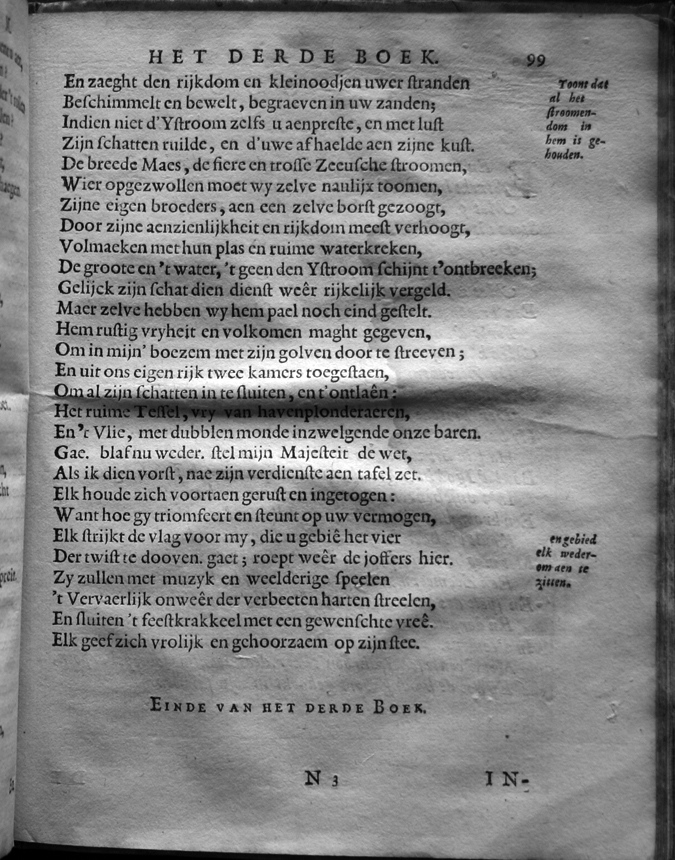 HET DERDE BOEK. 99
En zaeght den rijkdom en kleinoodjen uwer ſtranden
Beſchimmelt en bewelt, begraeven in uw zanden;
Indien niet d'Yſtroom zelfs u aenpreſte, en met luſt
Zijn ſchatten ruilde, en d'uwe afhaelde aen zijne kuſt.
De breede Maes, de fiere en troſſe Zeeuſche ſtroomen,
Wier opgezwollen moet wy zelve naulijx toomen,
Zijne eigen broeders, aen een zelve borſt gezoogt,
Door zijne aenzienlijkheit en rijkdom meeſt verhoogt,
Volmaeken met hun plas en ruime waterkreken,
De groote en 't water, 't geen den Yſtroom ſchijnt t'ontbreeken;
Gelijck zijn ſchat dien dienſt weêr rijkelijk vergeld.
Maer zelve hebben wy hem pael noch eind geſtelt.
Hem ruſtig vryheit en volkomen maght gegeven,
Om in mijn' boezem met zijn golven door te ſtreeven;
En uit ons eigen rijk twee kamers toegeſtaen,
Om al zijn ſchatten in te ſluiten, en t'ontlaên:
Het ruime Teſſel, vry van havenplonderaeren,
En 't Vlie, met dubblen monde inzwelgende onze baren.
Gae. blaſ nu weder. ſtel mijn Majeſteit de wet,
Als ik dien vorſt, nae zijn verdienſte aen tafel zet.
Elk houde zich voortaen geruſt en ingetogen:
Want hoe gy triomfeert en ſteunt op uw vermogen,
Elk ſtrijkt de vlag voor my, die u gebiê het vier
Der twiſt te dooven. gaet; roept weêr de joffers hier.
Zy zullen met muzyk en weelderige ſpeelen
't Vervaerlijk onweêr der verbeeten harten ſtreelen,
En ſluiten 't feeſtkrakkeel met een gewenſchte vreê.
Elk geef zich vrolijk en gehoorzaem op zijn ſtee.
Toont dat
al het
ſtroomen-
dom in
hem is ge-
houden.
en gebied
elk weder-
om aen te
zitten.
EINDE VAN HET DERDE BOEK.
N 3 IN-